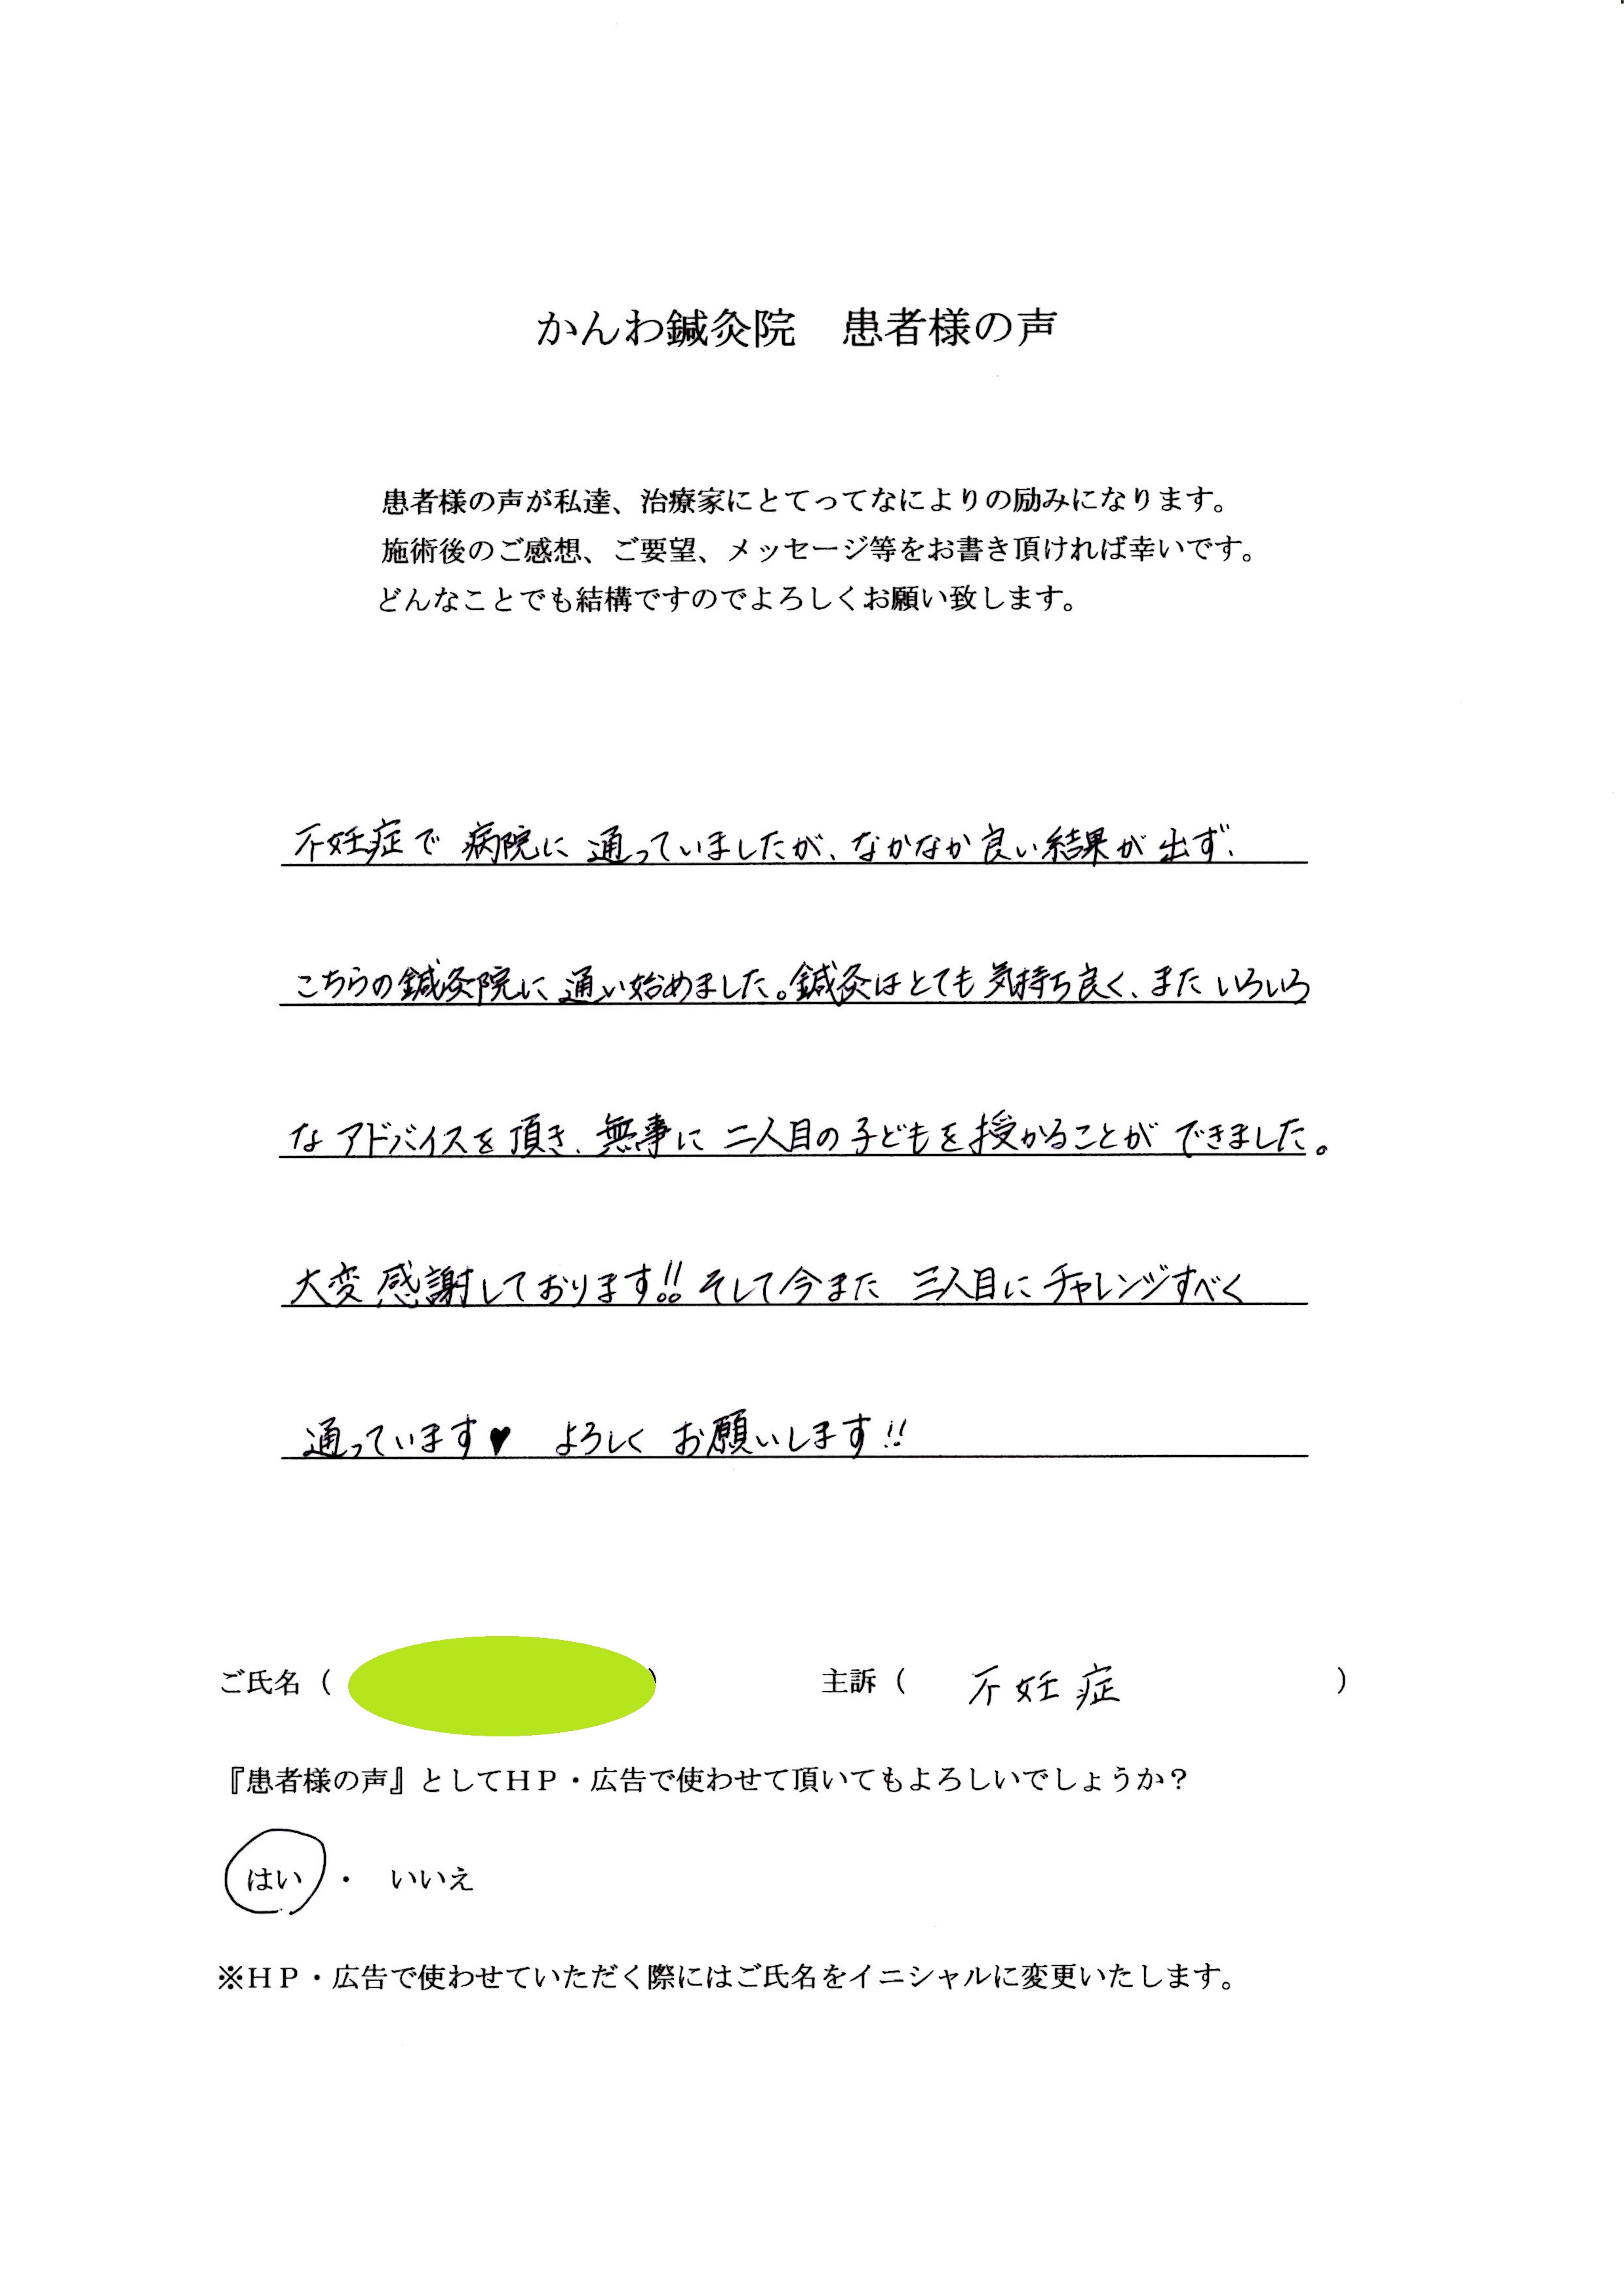 かんわ鍼灸院　患者様の声
患者様の声が私達、治療家にとてってなによりの励みになります。
施術後のご感想、ご要望、メッセージ等をお書き頂ければ幸いです。
どんなことでも結構ですのでよろしくお願い致します。
不妊症で 病院に 通っていましたが、なかなか良い結果が出ず、
こちらの鍼灸院に通い始めました。鍼灸はとても気持ち良く、またいろいろ
なアドバイスを頂き、無事に二人目の子どもを授かることができました。
大変感謝しております!! そして今また 三人目にチャレンジすべく
通っています♥ よろしくお願いします!!
ご氏名（　　）　主訴（　不妊症　）
『患者様の声』としてＨＰ・広告で使わせて頂いてもよろしいでしょうか？
はい ・ いいえ
※ＨＰ・広告で使わせていただく際にはご氏名をイニシャルに変更いたします。